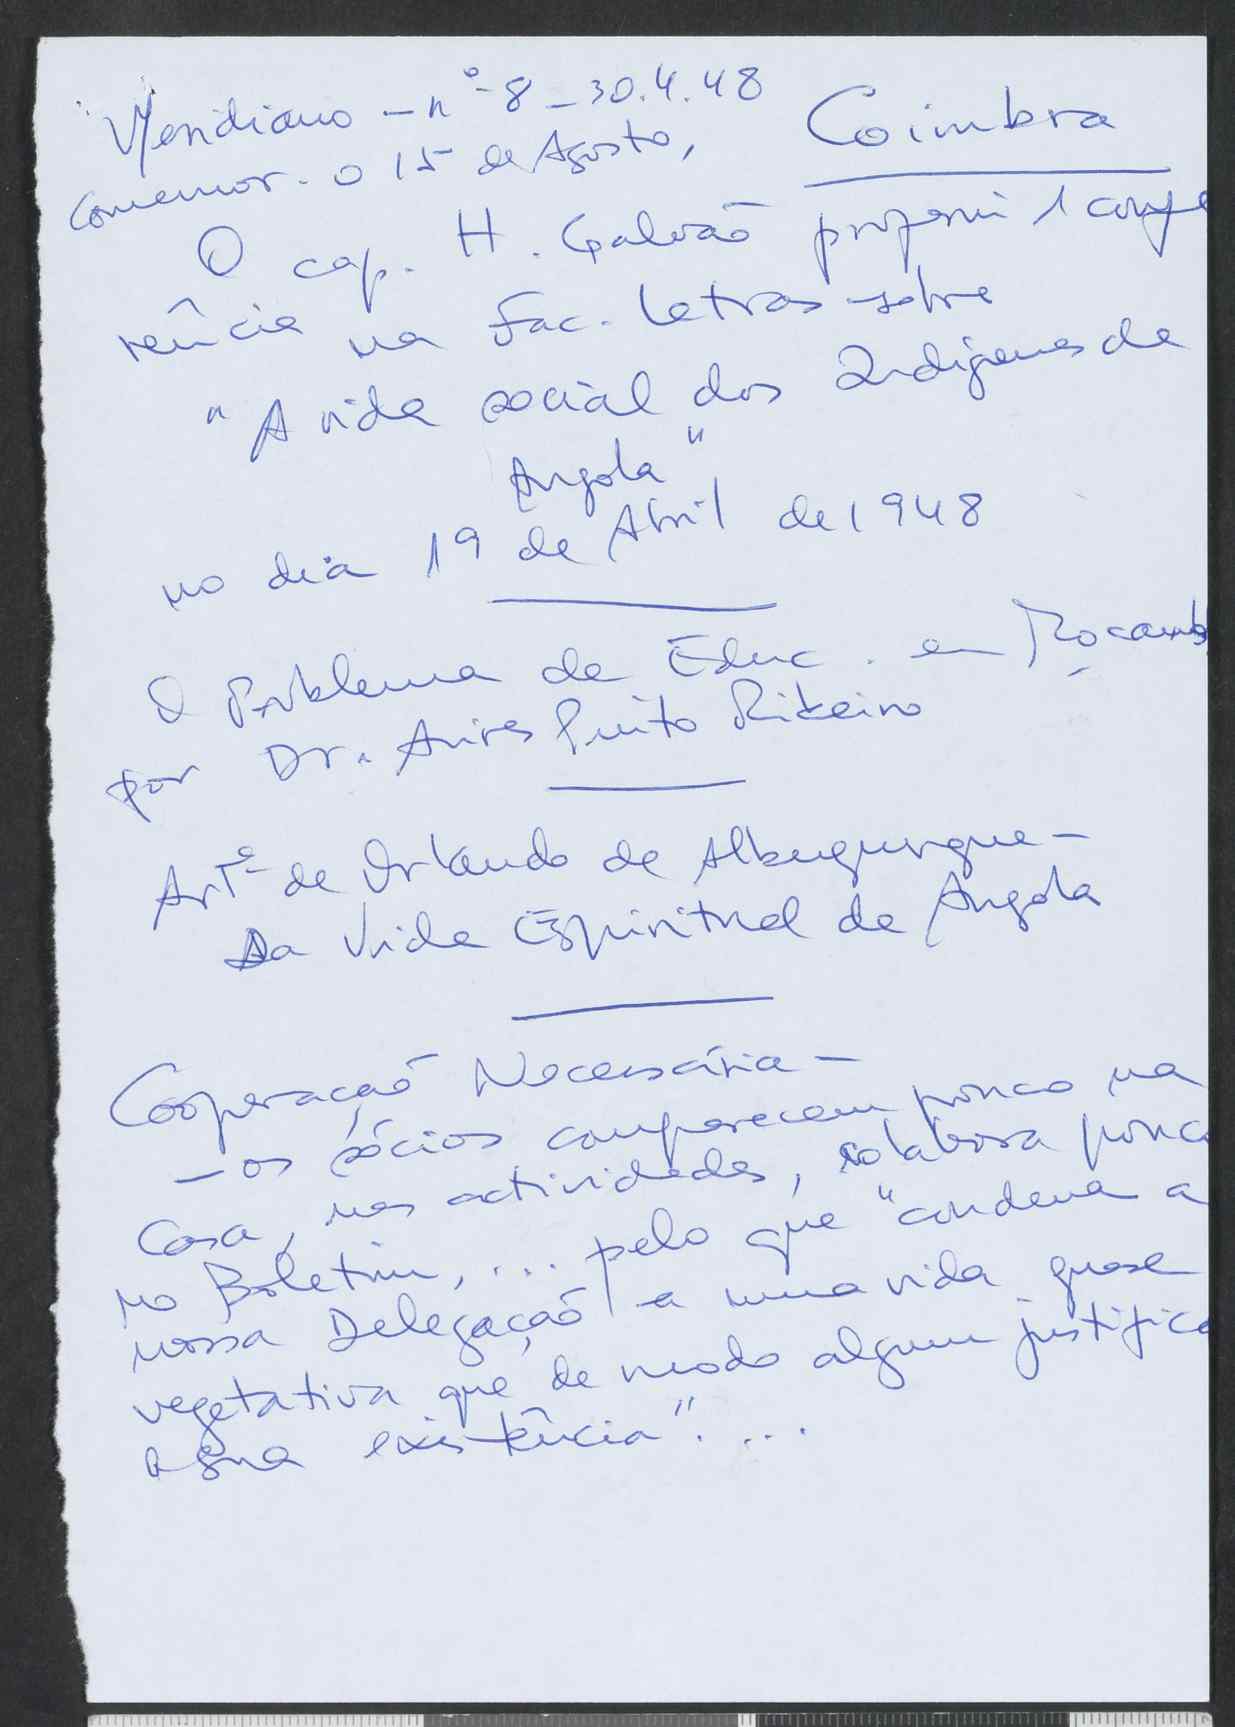 Meridiano - nº 8 - 30.4.48
Coimbra
Comemor. o 15 de Agosto,
O cap. H. Galvão proferiu 1 confe
rência na Fac. Letras sobre
"A vida social dos Indígenas de
Angola"
no dia 19 de Abril de 1948
O Problema da Educ. em Moçamb
por Dr. Aires Pinto Ribeiro
Artº de Orlando de Albuquerque -
Da Vida Espiritual de Angola
Cooperação Necessária -
- os sócios comparecem pouco na
Casa, nas actividades, colabora pouco
no Boletim, ... pelo que "condena a
nossa Delegação a uma vida quase
vegetativa que de modo algum justifica
a sua existência". ...